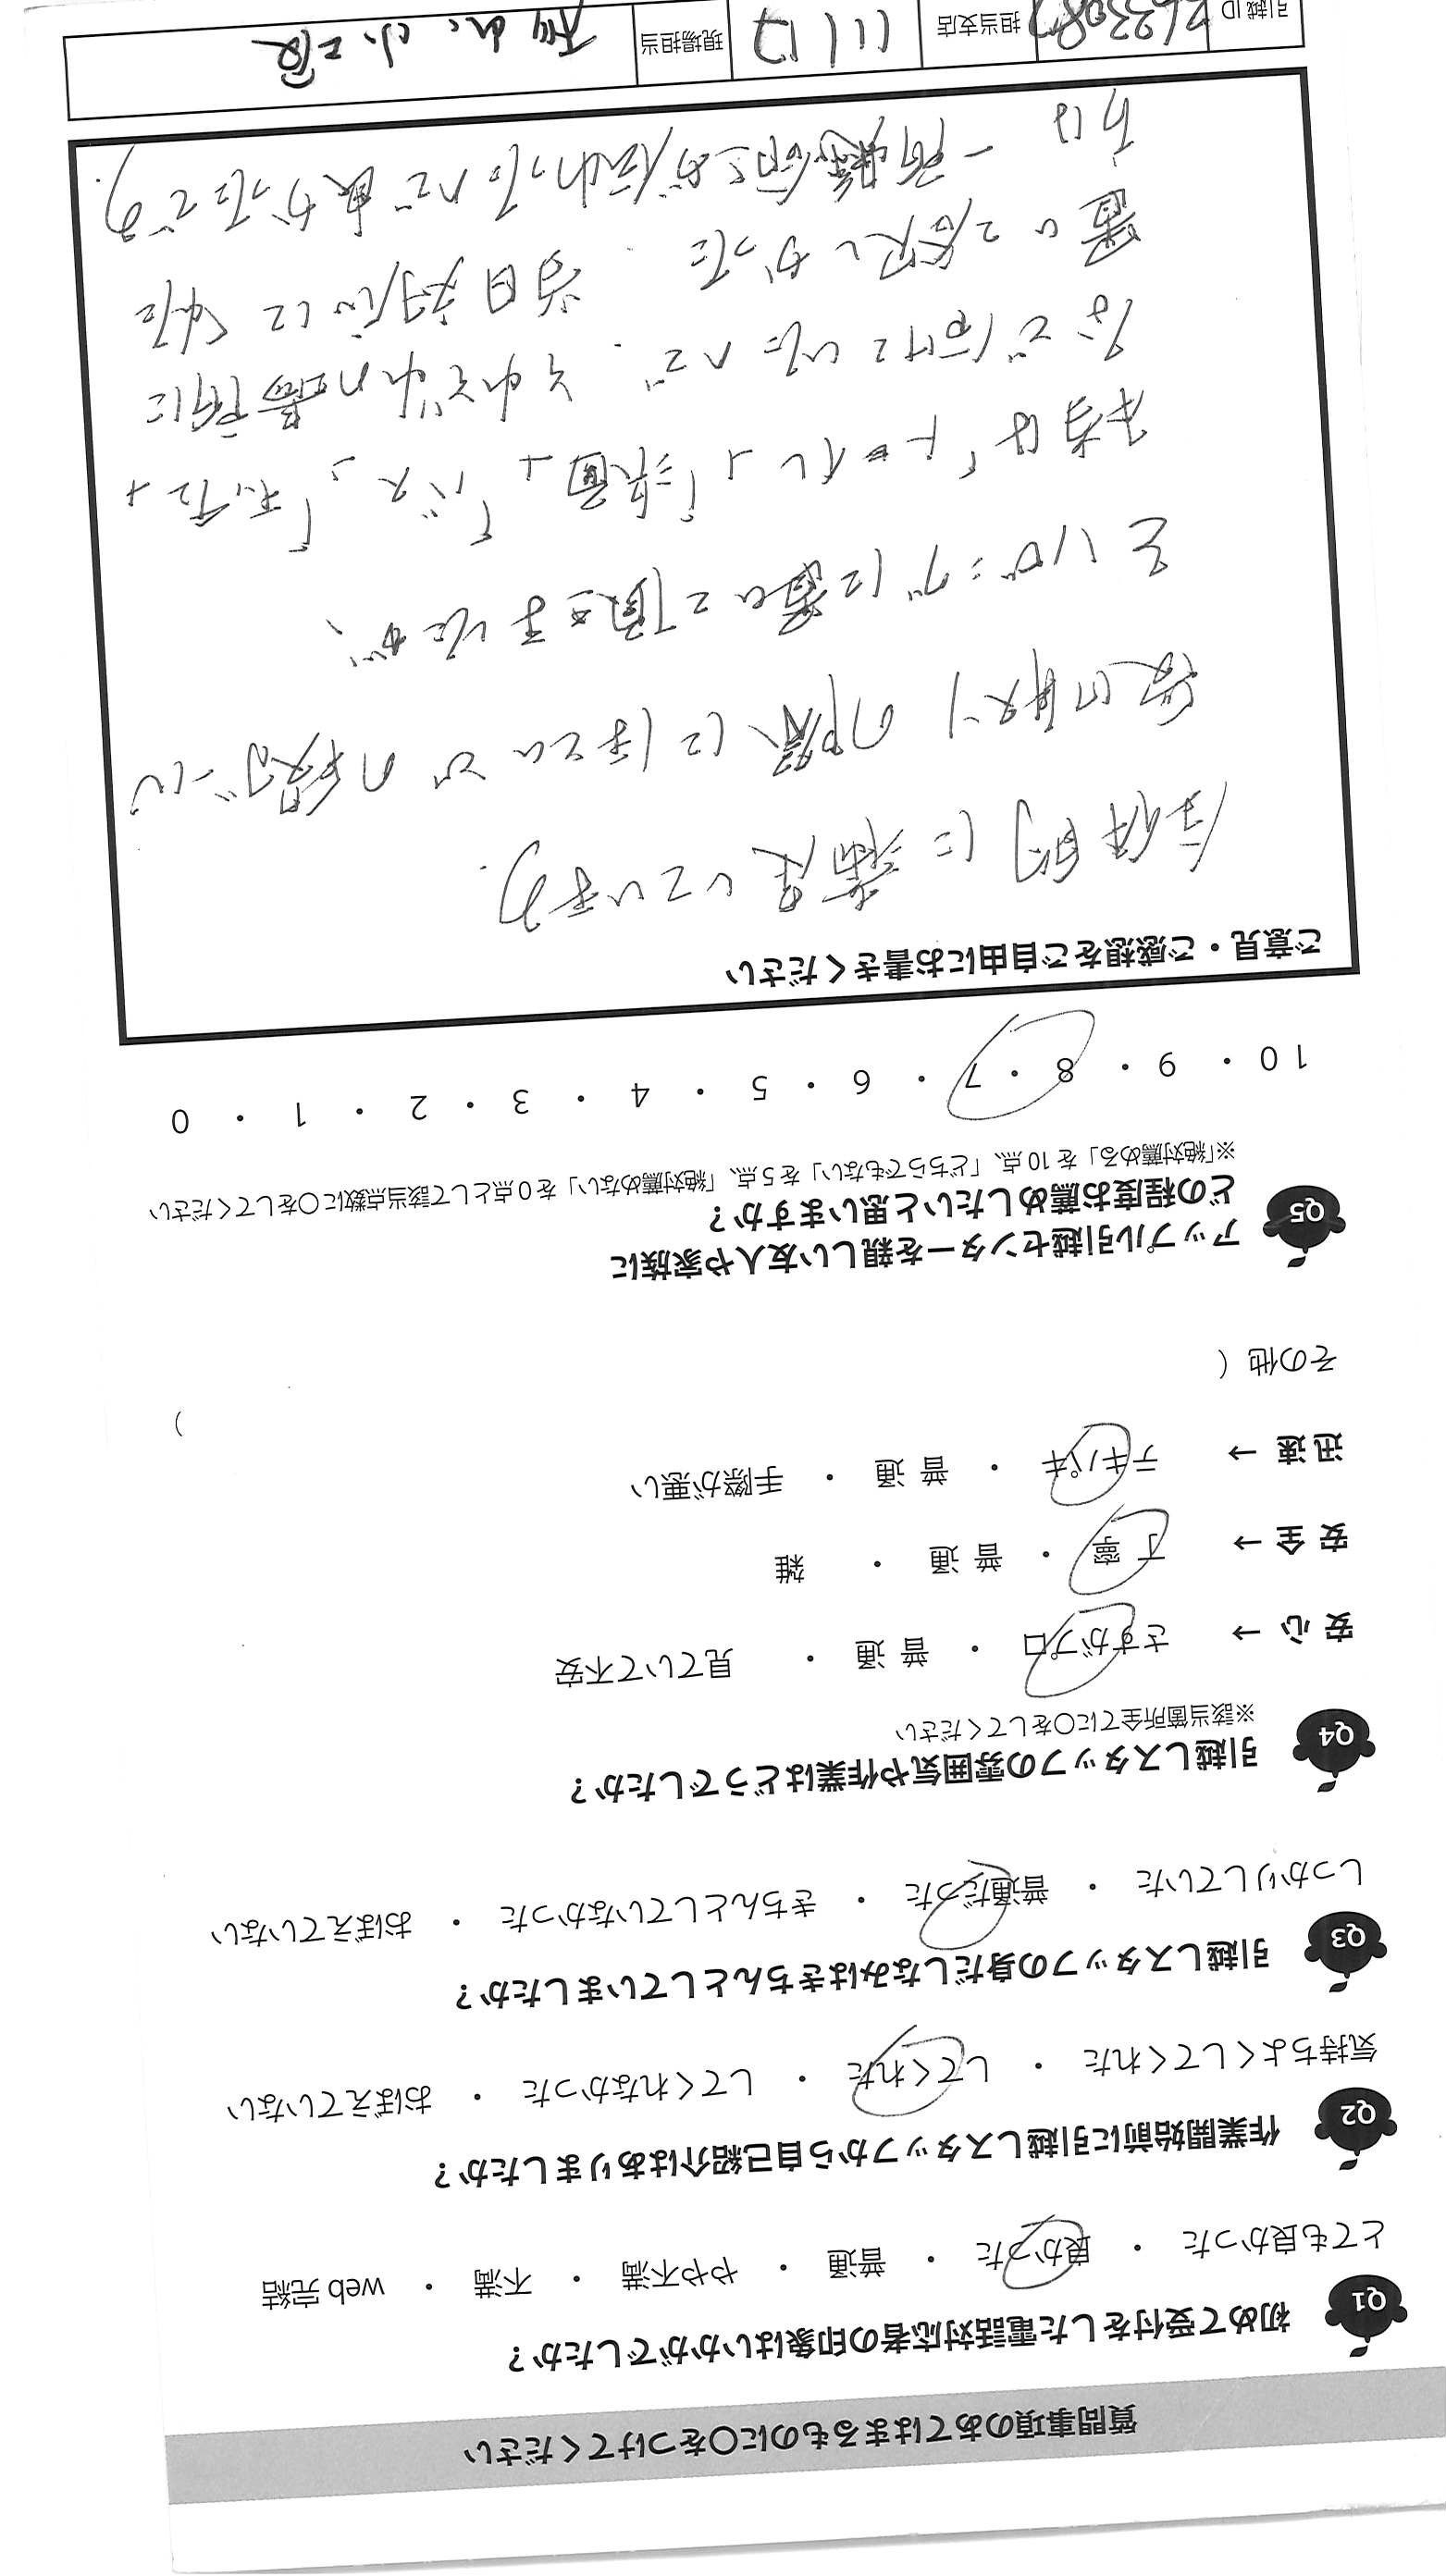 質問事項のあてはまるものに〇をつけてください
Q1 初めて受付をした電話対応者の印象はいかがでしたか？
とても良かった ・ 良かった ・ 普通 ・ やや不満 ・ 不満 ・ web 完結
Q2 作業開始前に引越しスタッフから自己紹介はありましたか？
気持ちよくしてくれた ・ してくれた ・ してくれなかった ・ おぼえていない
Q3 引越しスタッフの身だしなみはきちんとしていましたか？
しっかりしていた ・ 普通だった ・ きちんとしていなかった ・ おぼえていない
Q4 引越しスタッフの雰囲気や作業はどうでしたか？
※該当箇所全てに〇をしてください
安 心 → さすがプロ ・ 普 通 ・ 見ていて不安
安 全 → 丁 寧 ・ 普 通 ・ 雑
迅 速 → テキパキ ・ 普 通 ・ 手際が悪い
その他（ ）
Q5 アップル引越センターを親しい友人や家族に
どの程度お薦めしたいと思いますか？
※「絶対薦める」を 10 点、「どちらでもない」を 5 点、「絶対薦めない」を 0 点として該当点数に〇をしてください
10 ・ 9 ・ 8 ・ 7 ・ 6 ・ 5 ・ 4 ・ 3 ・ 2 ・ 1 ・ 0
ご意見・ご感想をご自由にお書きください
全体的に満足しています。
荷の搬入の際にほとんどの段ボール
をリビングに置いて頂きましたが、
本当は「トイレ」「洗面」「バス」「キッチン」
など分けていたので、それぞれの場所に
置いて欲しかった。当日対応に
は 一所懸命さが伝わったので良かったです。
引越 ID 担当支店 現場担当